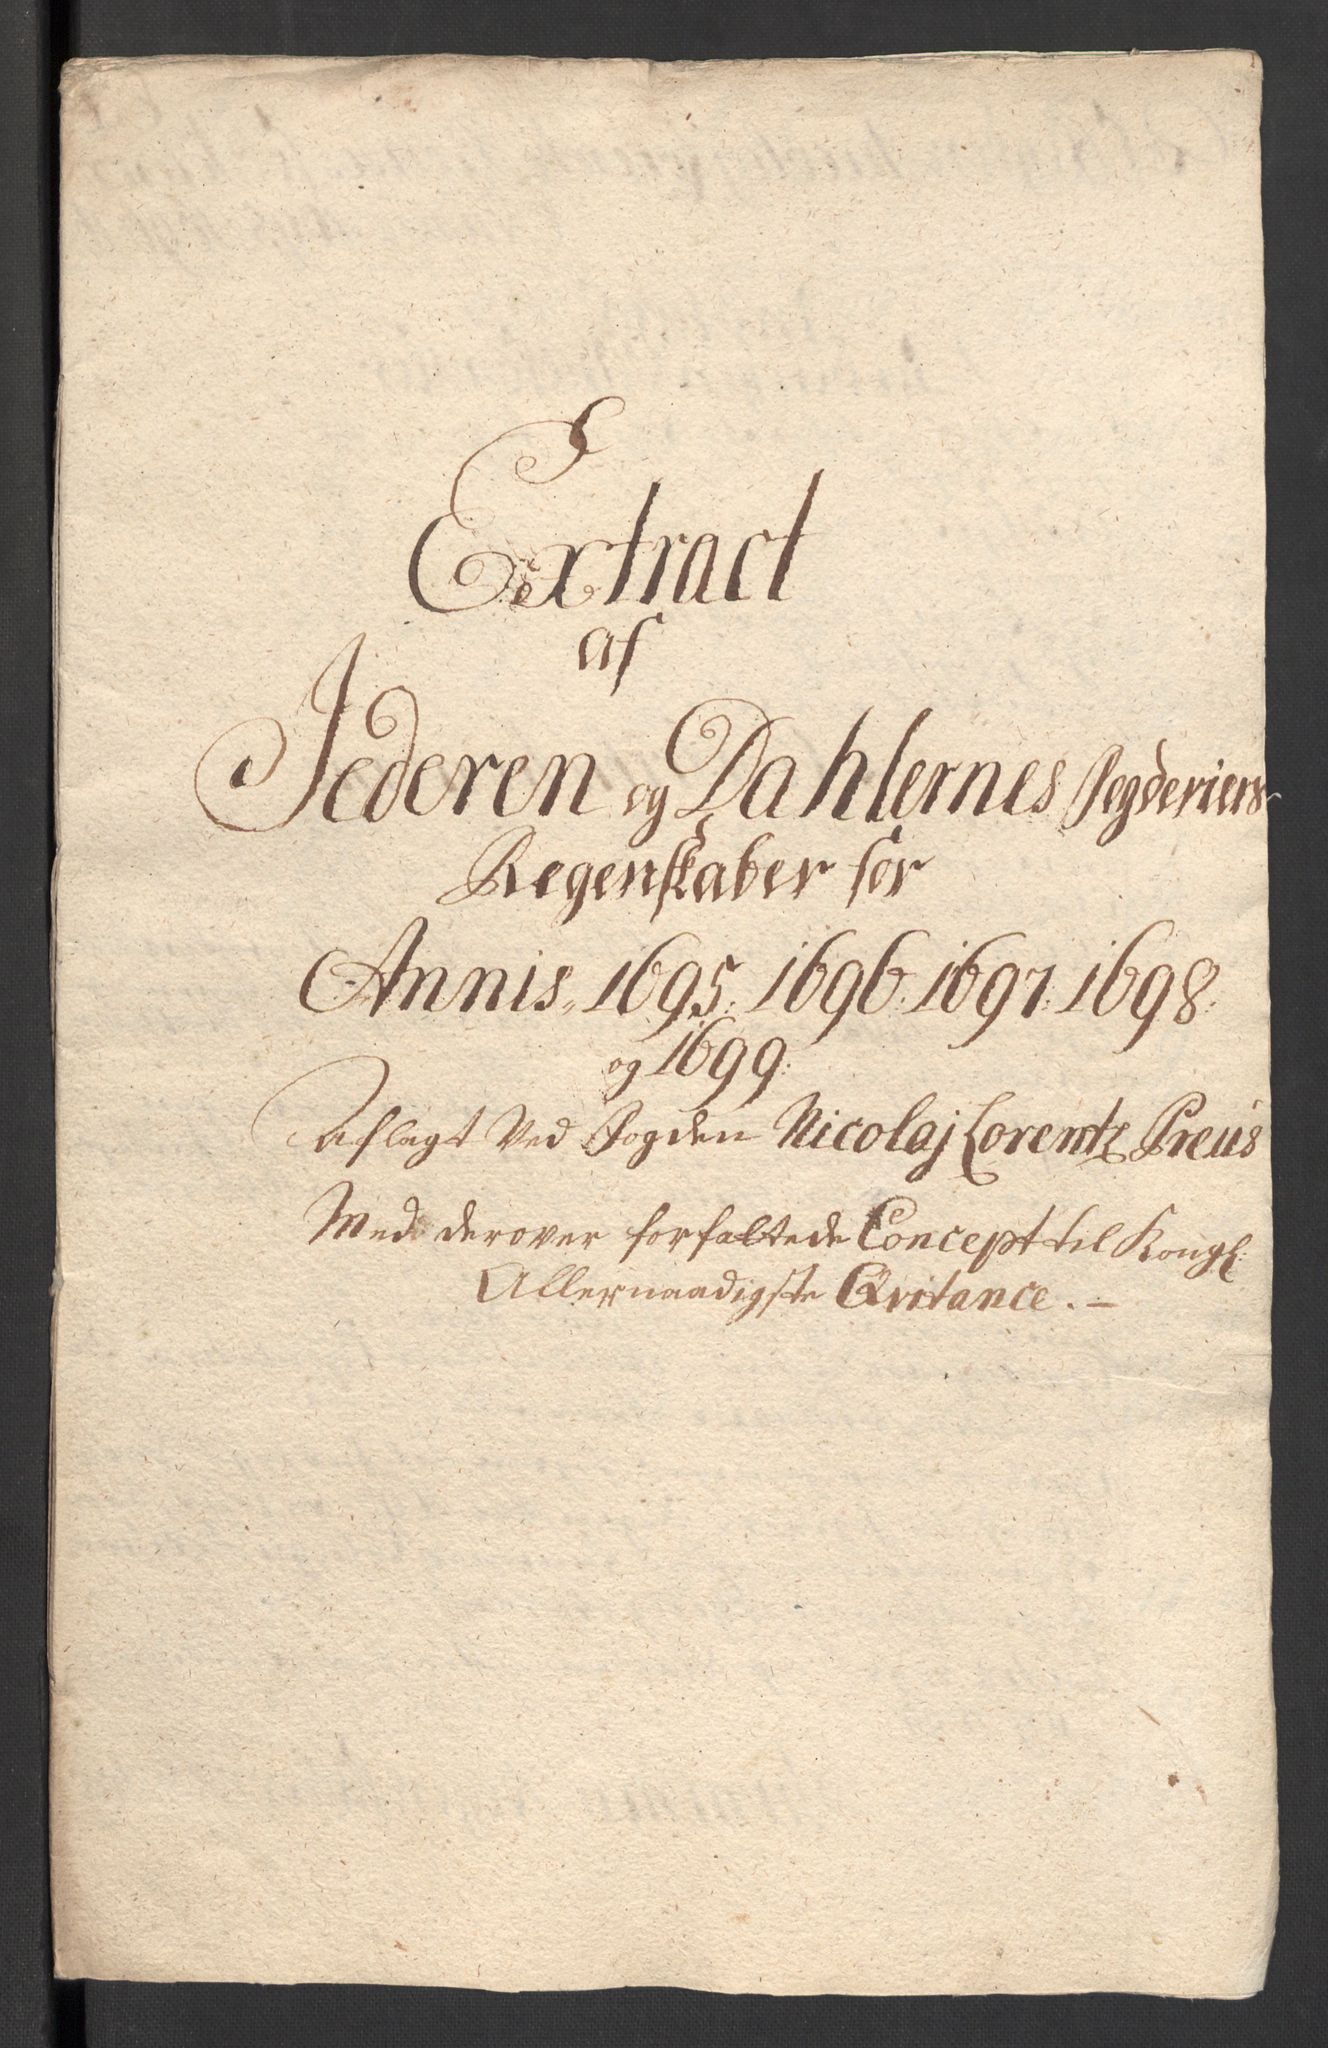 Extract
af
Jederen og Dahlernes Fogderiers
Regenskaber for
Annis, 1695: 1696: 1697: 1698:
og 1699:
aflagt Ved Fogden Nicolaj Lorentz Preüs
Med derover forfattede Concept til Kongl:
Allernaadigste Qvitance. –